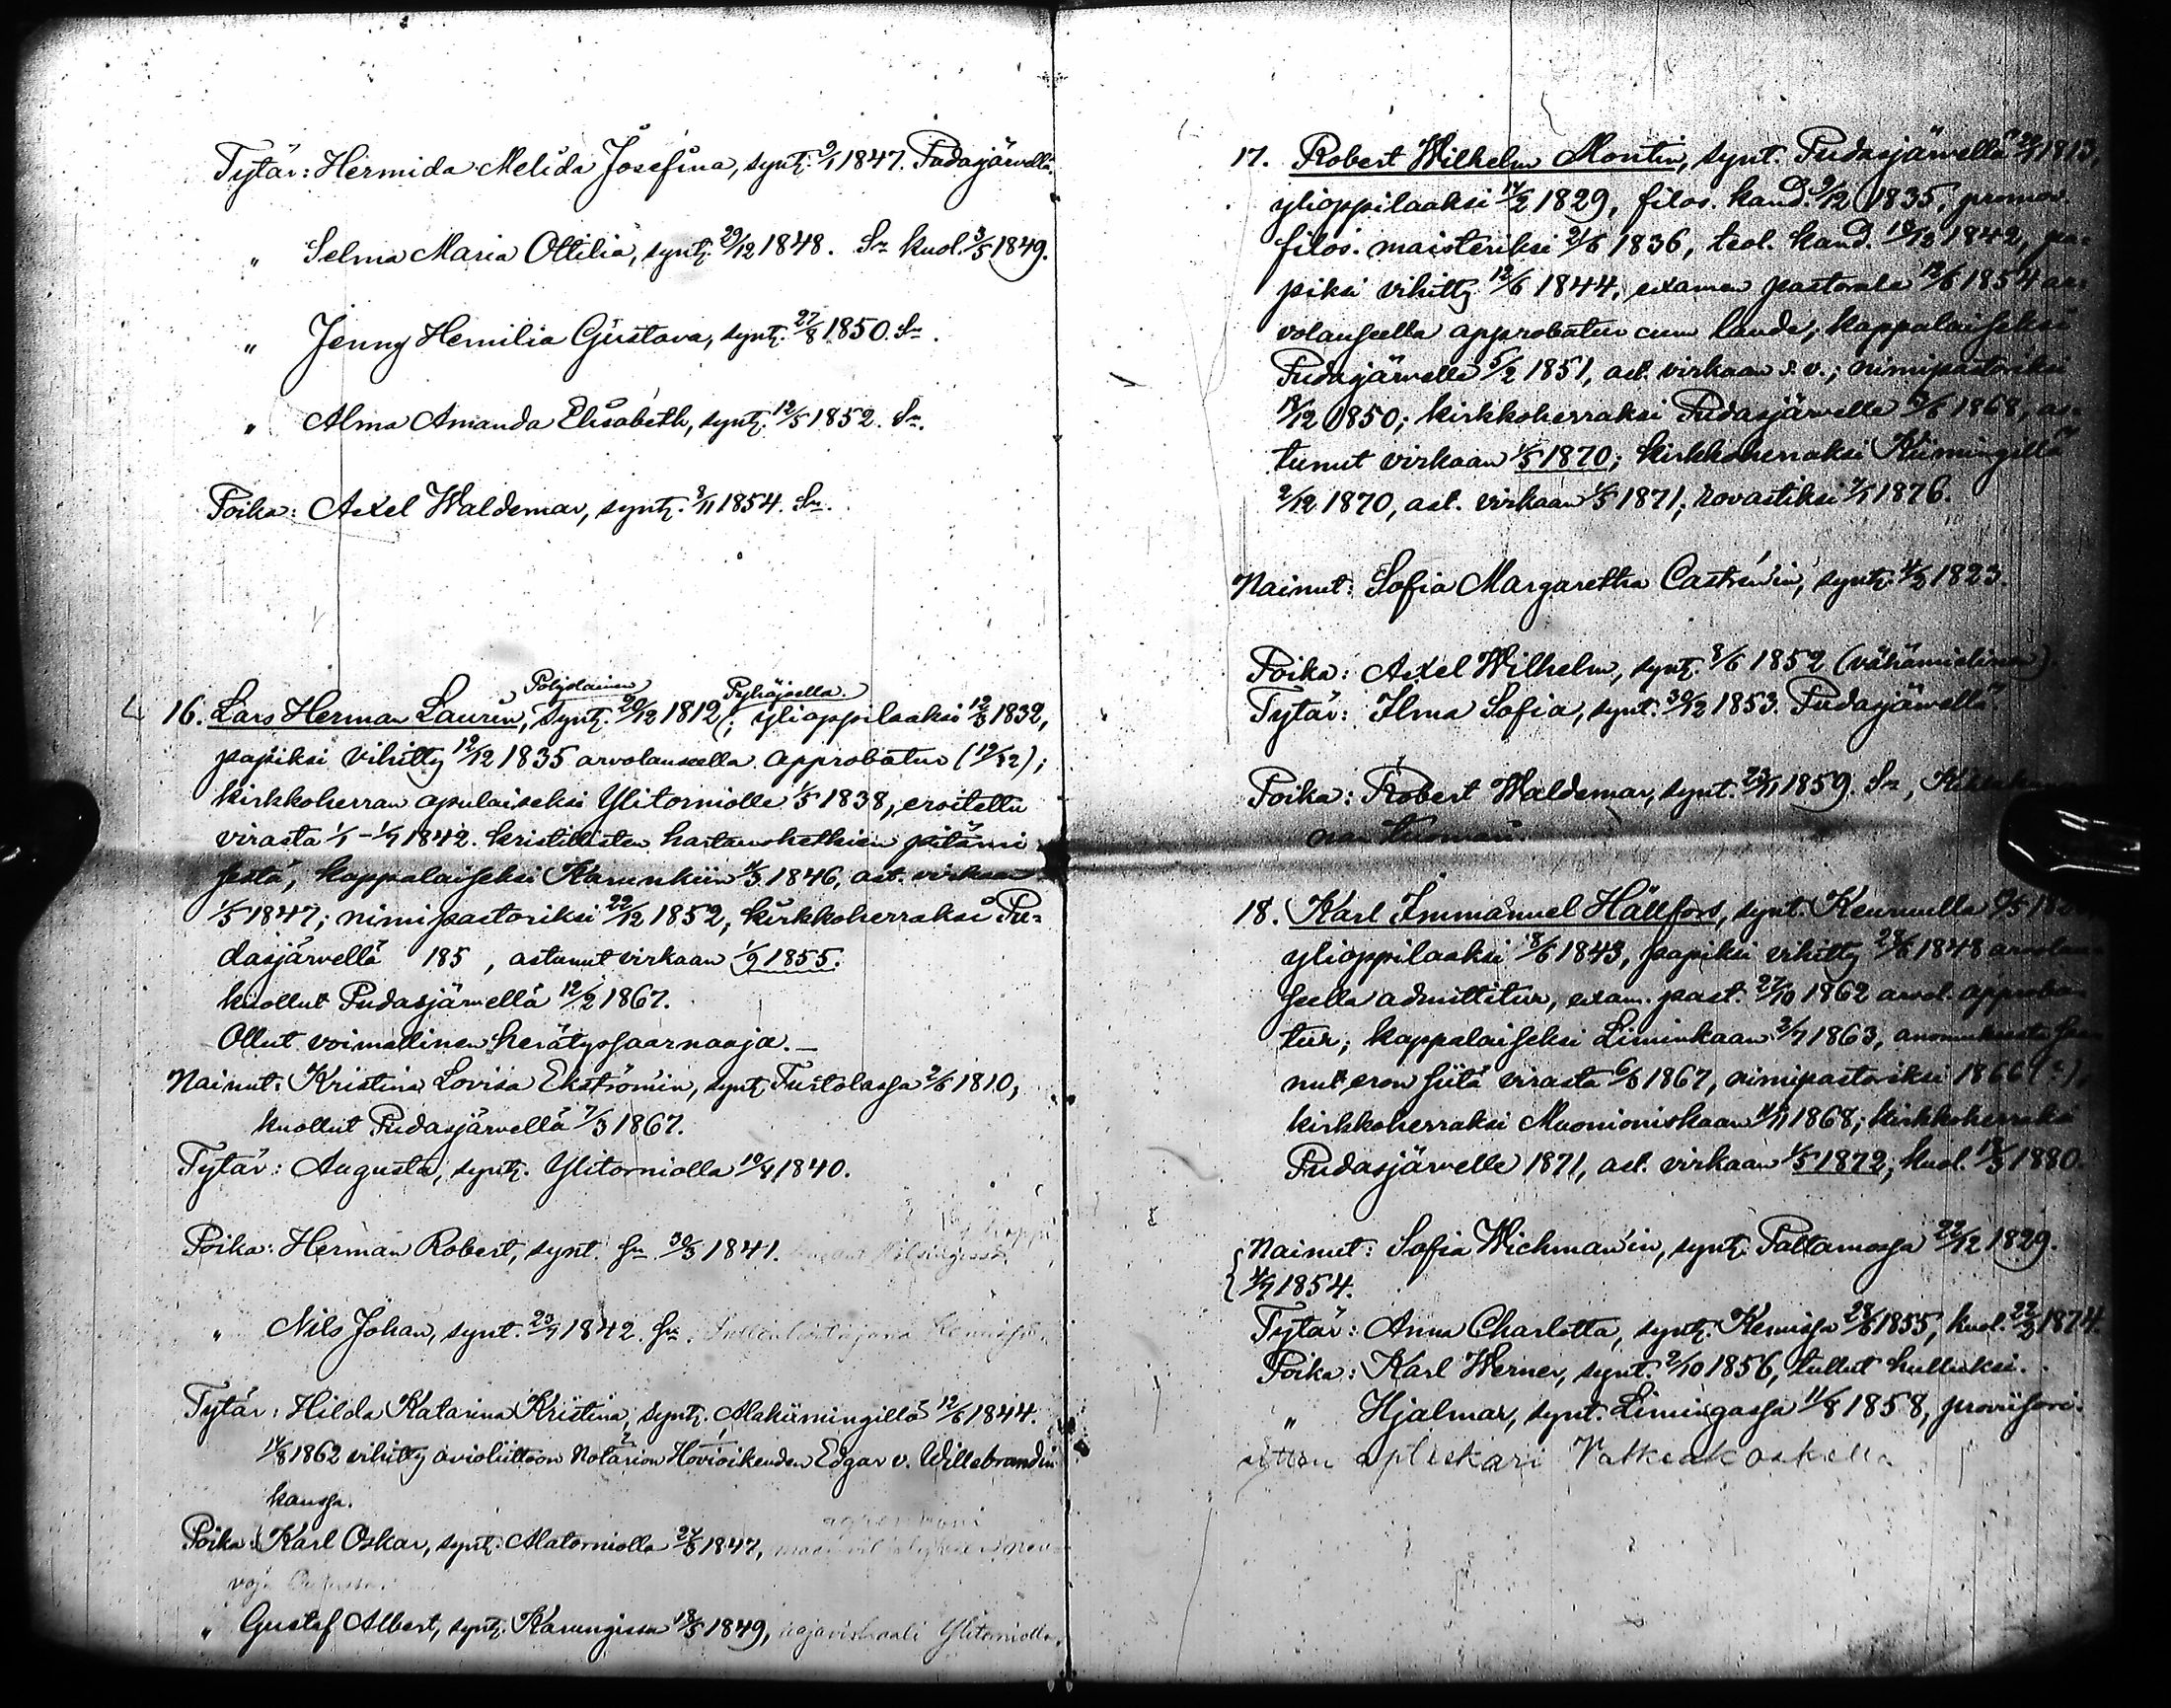 Tytär: Hermida Melida Josefina, synt. 9/1 1847. Pudasjärvellä.
" Selma Maria Ottilia, synt. 29/12 1848. Sn kuol. 3/5 1849.
" Jenny Hemilia Gustava, synt. 27/8 1850. Sn.
" Alma Amanda Elisabeth, synt. 12/5 1852. Sn.
Poika: Axel Waldemar, synt. 8/11 1854. Sn.
Pohjolainen Pyhäjoella.
16. Lars Herman Laurin, synt. 20/12 1812; ylioppilaaksi 1832,
papiksi vihitty 19/12 1835 arvolauseella approbatur (19/32);
kirkkoherran apulaiseksi Ylitorniolle 1/5 1838, eroitettu
virasta 1/1-1/7 1842. kristillisten hartaushetkien pitämi
sestä; kappalaiseksi Karunkiin 1846, ast. virkaan
1/5 1847; nimipastoriksi 22/12 1852, kirkkoherraksi Pu-
dasjärvellä 185 , astunut virkaan 1/9 1855.
kuollut Pudasjärvellä 12/2 1867.
Ollut voimallinen herätyssaarnaaja.-
Nainut: Kristina Lovisa Ekström'in, synt. Turtolassa 2/6 1810,
kuollut Pudasjärvellä 7/3 1867.
Tytär: Augusta, synt. Ylitorniolla 1840.
Poika: Herman Robert, synt. Sn 30/3 1841.
" Nils Johan, synt. 1842. Sn.
Tytär: Hilda Katarina Kristina, synt. Alakiimingillä 12/6 1844.
1862 vihitty avioliittoon Notarion Hovioikeuden Edgar v. Willebrandin
kanssa.
agronomi
Poika: Karl Oskar, synt. Alatorniolla 1847,
" Gustaf Albert, synt. Karungissa 18/5 1849, Ylitorniolla.
17. Robert Wilhelm Montin, synt. Pudasjärvellä 1813
ylioppilaaksi 14/2 1829, filos. kand. 9/12 1835, promov.
filos. maisteriksi 21/6 1836, teol. kand. 1842, pa-
piksi vihitty 12/6 1844, examen pastorale 12/6 1854 ar-
volauseella approbatur cum laude; kappalaiseksi
Pudasjärvelle 5/2 1851, ast. virkaan s. v.; nimipastoriksi
18/12 1850; kirkkoherraksi Pudasjärvelle 1868, as-
tunut virkaan 1/5 1870; kirkkoherraksi Kiimingille
2/12 1870, ast. virkaan 1/5 1871; rovastiksi 1876.
Nainut: Sofia Margaretha Castrén'in, synt. 1823.
Poika: Axel Wilhelm, synt. 8/6 1852 (vähämielinen).
Tytär: Ilma Sofia, synt. 30/12 1853. Pudasjärvellä.
Poika: Robert Waldemar, synt. 23/11 1859. Sn,
nan tuomari.
18. Karl Immanuel Hällfors, synt. Keuruulla
ylioppilaaksi 18/6 1843, papiksi vihitty 28/6 1848 arvolau
seella admittitur, exam. past. 27/10 1862 arvol. approba-
tur; kappalaiseksi Liminkaan 1863, anomuksesta
nut eron siitä virasta 1867, nimipastoriksi 1866 (?);
kirkkoherraksi Muonioniskaan 1868; kirkkoherraksi
Pudasjärvelle 1871, ast. virkaan 1/5 1872, kuol. 1880.
Nainut: Sofia Wichman'in, synt. Paltamossa 22/12 1829.
1854.
Tytär: Anna Charlotta, synt. Kemissä 1855, kuol. 1874.
Poika: Karl Werner, synt. 2/10 1856, tullut hulluksi.
" Hjalmar, synt. Limingassa 11/8 1858, proviisori.
sitten apteekari Valkeakoskella